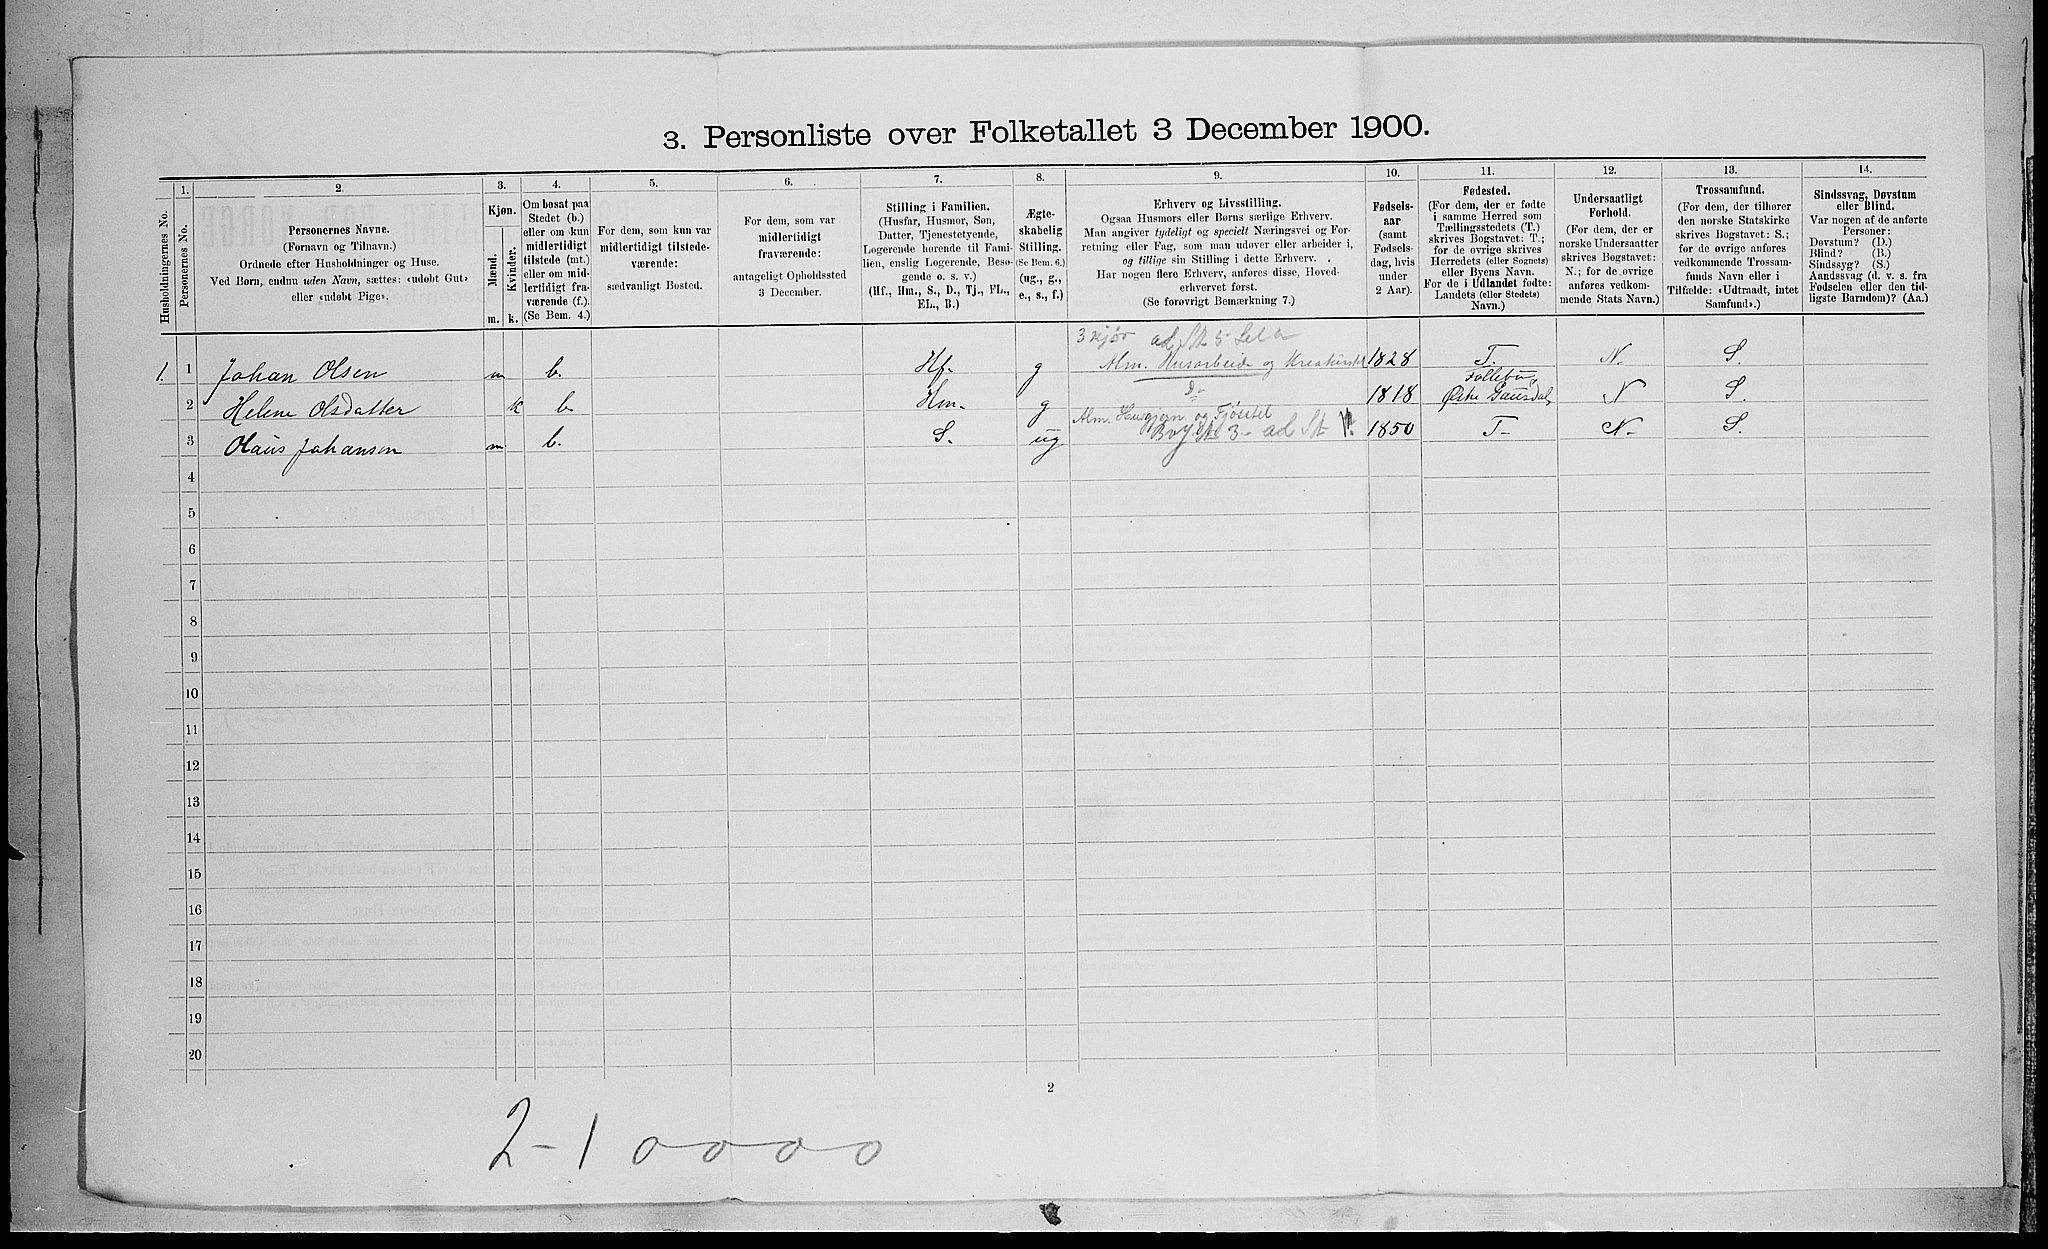 3. Personliste over Folketallet 3 December 1900.
Husholdningernes No.
1.
Personernes No.
2.
Personernes Navne.
(Fornavn og Tilnavn.)
Ordnede efter Husholdninger og Huse.
Ved Børn, endnu uden Navn, sættes: «udøbt Gut»
eller «udøbt Pige».
3.
Kjøn.
Mænd.
Kvinder.
m.
k.
4.
Om bosat paa
Stedet (b.)
eller om kun
midlertidigt
tilstede (mt.)
eller om mid-
lertidigt fra-
værende (f.).
(Se Bem. 4.)
5.
For dem, som kun var
midlertidigt tilstede-
værende:
sædvanligt Bosted.
6.
For dem, som var
midlertidigt
fraværende:
antageligt Opholdssted
3 December.
7.
Stilling i Familien.
(Husfar, Husmor, Søn,
Datter, Tjenestetyende,
Logerende hørende til Fami-
lien, enslig Logerende, Besø-
gende o. s. v.)
(Hf., Hm., S., D., Tj., FL.,
EL., B.)
8.
Ægte-
skabelig
Stilling.
(Se Bem. 6.)
(ug., g.,
e., s., f.)
9.
Erhverv og Livsstilling.
Ogsaa Husmors eller Børns særlige Erhverv.
Man angiver tydeligt og specielt Næringsvei og For-
retning eller Fag, som man udøver eller arbeider i,
og tillige sin Stilling i dette Erhverv.
Har nogen flere Erhverv, anføres disse, Hoved-
erhvervet først.
(Se forøvrigt Bemærkning 7.)
10.
Fødsels-
aar
(samt
Fødsels-
dag, hvis
under
2 Aar).
11.
Fødested.
(For dem, der er fødte
i samme Herred som
Tællingsstedets (T.)
skrives Bogstavet: T.;
for de øvrige skrives
Herredets (eller Sognets)
eller Byens Navn.
For de i Udlandet fødte:
Landets (eller Stedets)
Navn.)
12.
Undersaatligt
Forhold.
(For dem, der er
norske Undersaatter
skrives Bogstavet:
N.; for de øvrige
anføres vedkom-
mende Stats Navn.)
13.
Trossamfund.
(For dem, der tilhører
den norske Statskirke
skrives Bogstavet: S.;
for de øvrige anføres
vedkommende Trossam-
funds Navn eller i
Tilfælde: «Udtraadt, intet
Samfund».)
14.
Sindssvag, Døvstum
eller Blind.
Var nogen af de anførte
Personer:
Døvstum? (D.)
Blind? (B.)
Sindssyg? (S.)
Aandssvag (d. v. s. fra
Fødselen eller den tid-
ligste Barndom)? (Aa.)
3 kjør ad St 5
1. 1 Johan Olsen m b. Hf. g Alm. Husarbeide og 1828 T. N. S.
2 Helene Olsdatter k b. Hm. g Alm. Husgjern. og Fjøsstel 1818 Follebu, Østre Gausdal N S.
3 Olaus Johansen m b. S. ug 3- ad St 1850 T- N- S.
4
5
6
7
8
9
10
11
12
13
14
15
16
17
18
19
20
2
2-1 0000